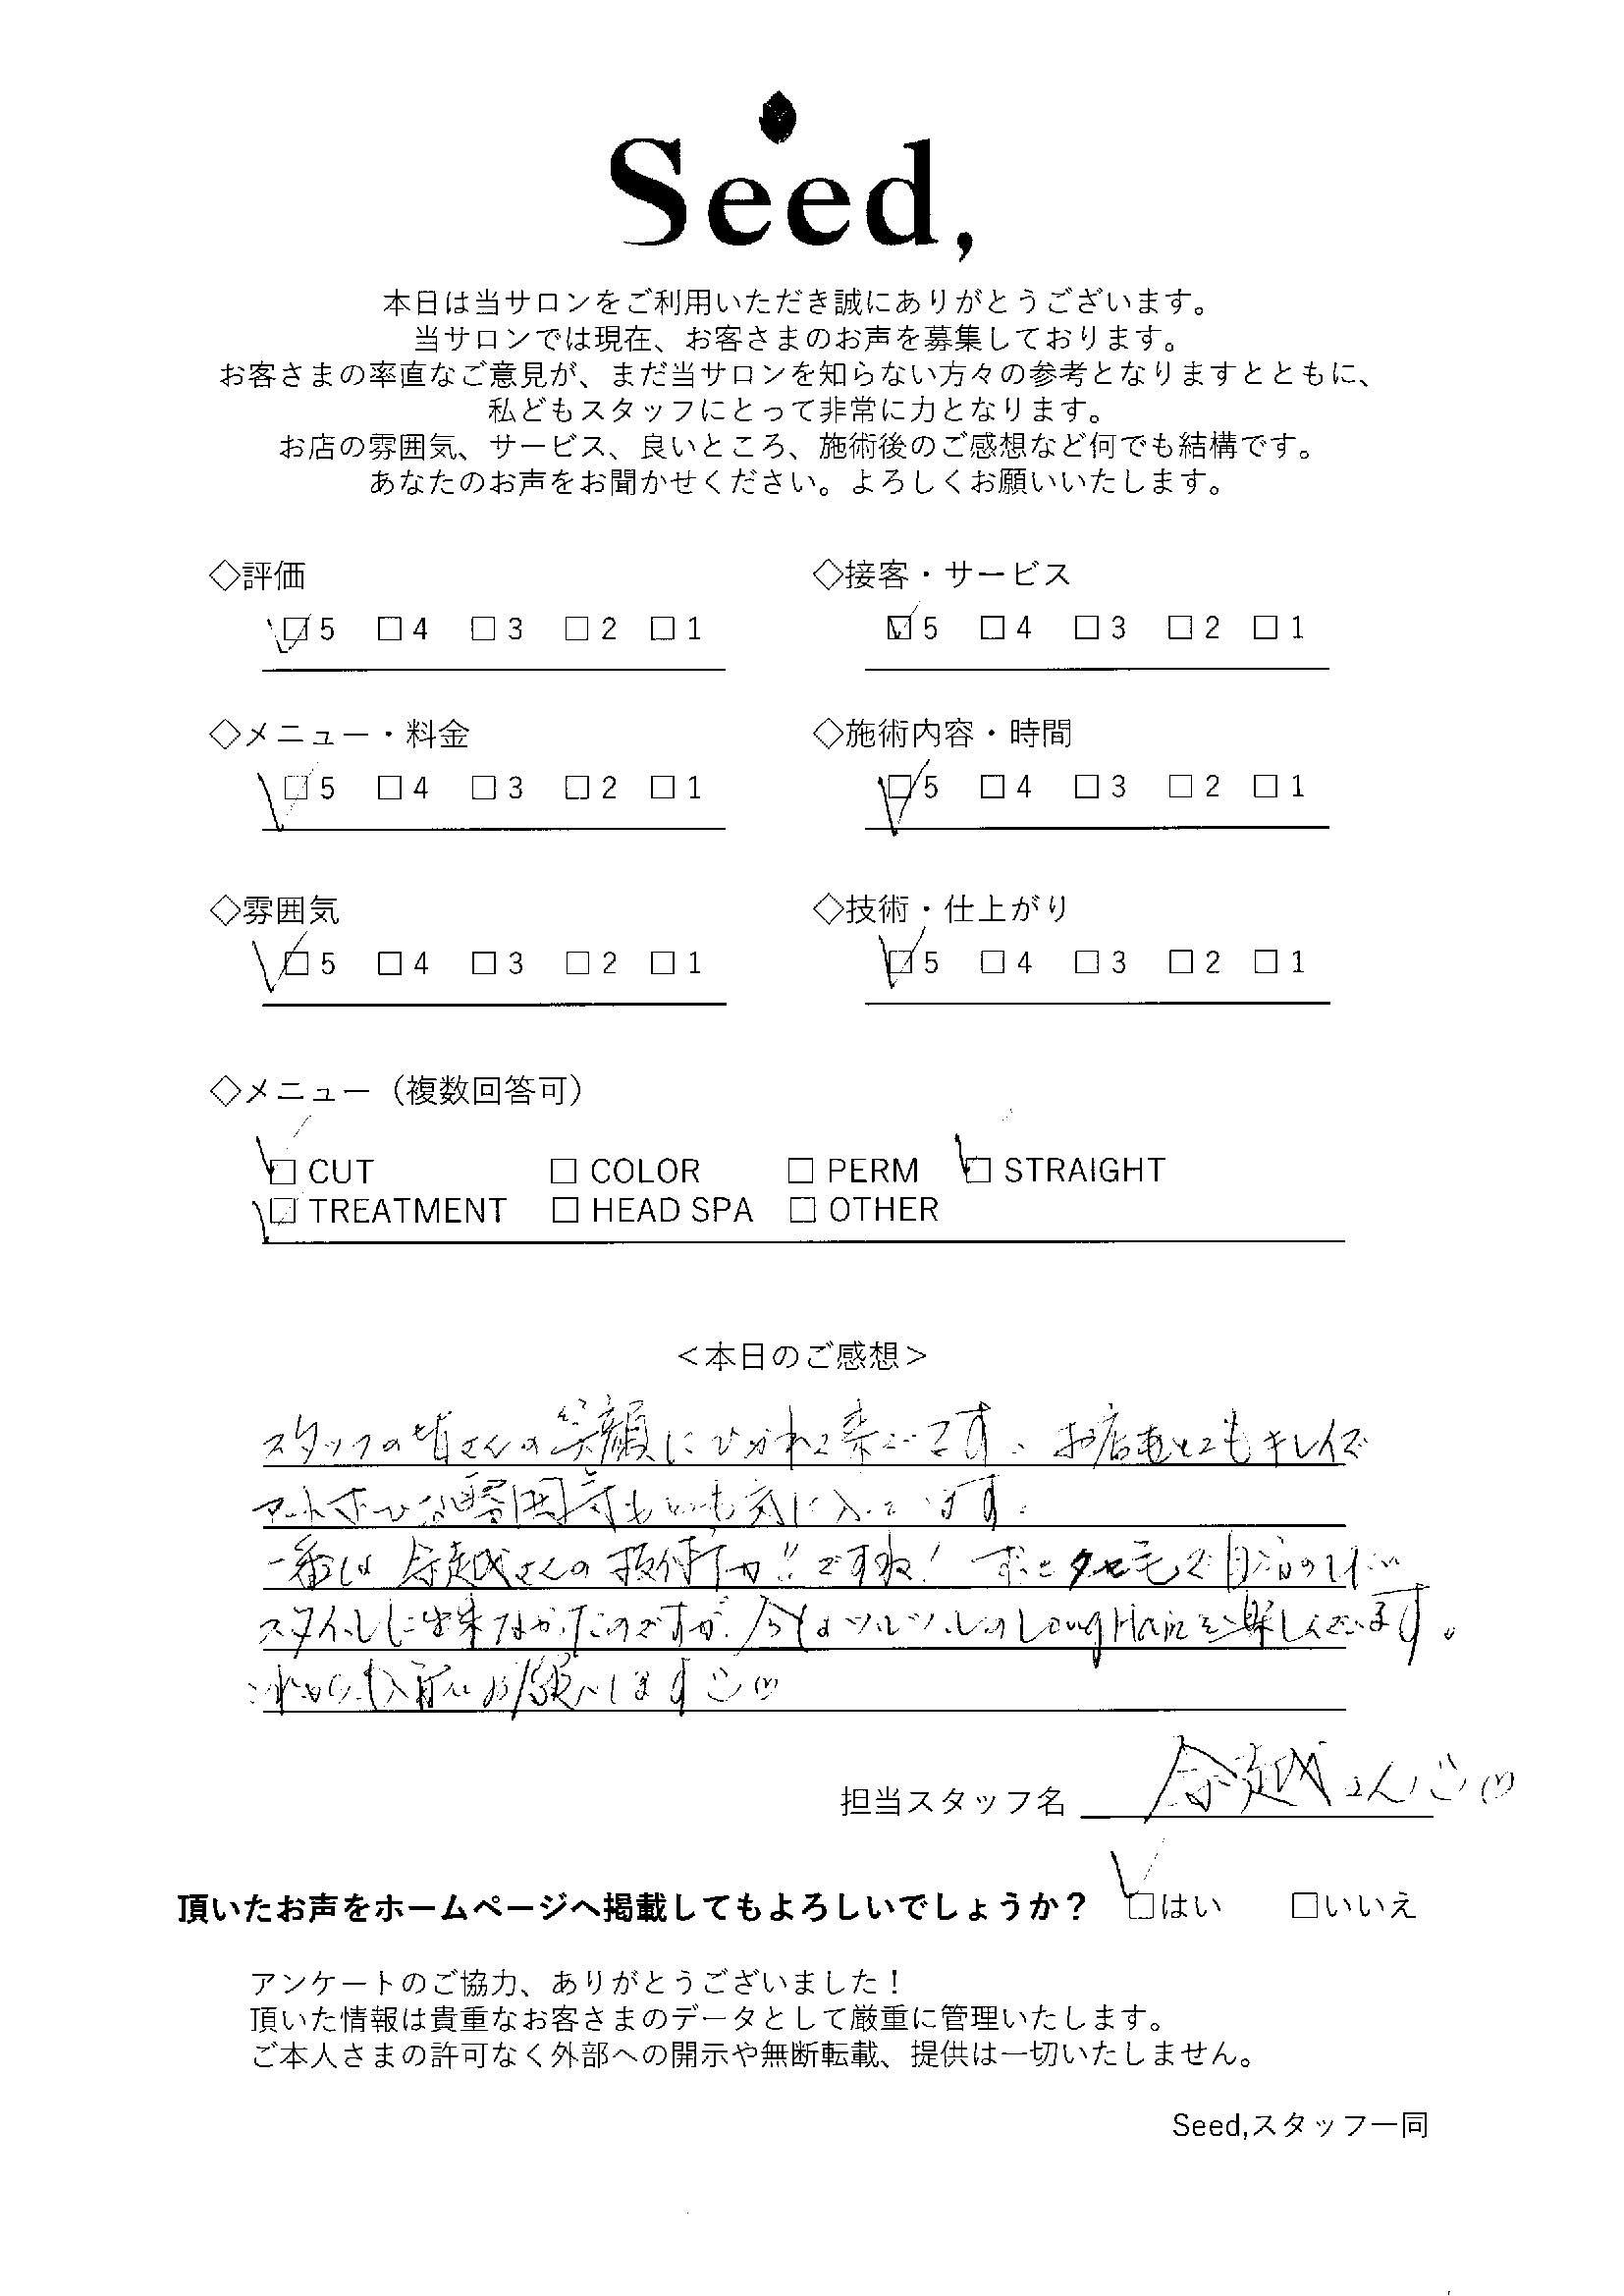 Seed,
本日は当サロンをご利用いただき誠にありがとうございます。
当サロンでは現在、お客さまのお声を募集しております。
お客さまの率直なご意見が、まだ当サロンを知らない方々の参考となりますとともに、
私どもスタッフにとって非常に力となります。
お店の雰囲気、サービス、良いところ、施術後のご感想など何でも結構です。
あなたのお声をお聞かせください。よろしくお願いいたします。
◇評価 ◇接客・サービス
☑5 □4 □3 □2 □1 ☑5 □4 □3 □2 □1
◇メニュー・料金 ◇施術内容・時間
☑5 □4 □3 □2 □1 ☑5 □4 □3 □2 □1
◇雰囲気 ◇技術・仕上がり
☑5 □4 □3 □2 □1 ☑5 □4 □3 □2 □1
◇メニュー（複数回答可）
☑CUT □COLOR □PERM ☑STRAIGHT
☑TREATMENT □HEAD SPA □OTHER
＜本日のご感想＞
スタッフの皆さんの笑顔にひかれて来ています。お店もとてもキレイで
アットホームな雰囲気もとても気に入っています。
一番は 余越さんの技術力!!ですね! ずっとクセ毛で自分のしたい
スタイルに出来なかったのですが、今はツルツルのLong Hairを楽しんでいます。
これからもお願いします
担当スタッフ名 余越さん
頂いたお声をホームページへ掲載してもよろしいでしょうか？ ☑はい □いいえ
アンケートのご協力、ありがとうございました！
頂いた情報は貴重なお客さまのデータとして厳重に管理いたします。
ご本人さまの許可なく外部への開示や無断転載、提供は一切いたしません。
Seed,スタッフ一同